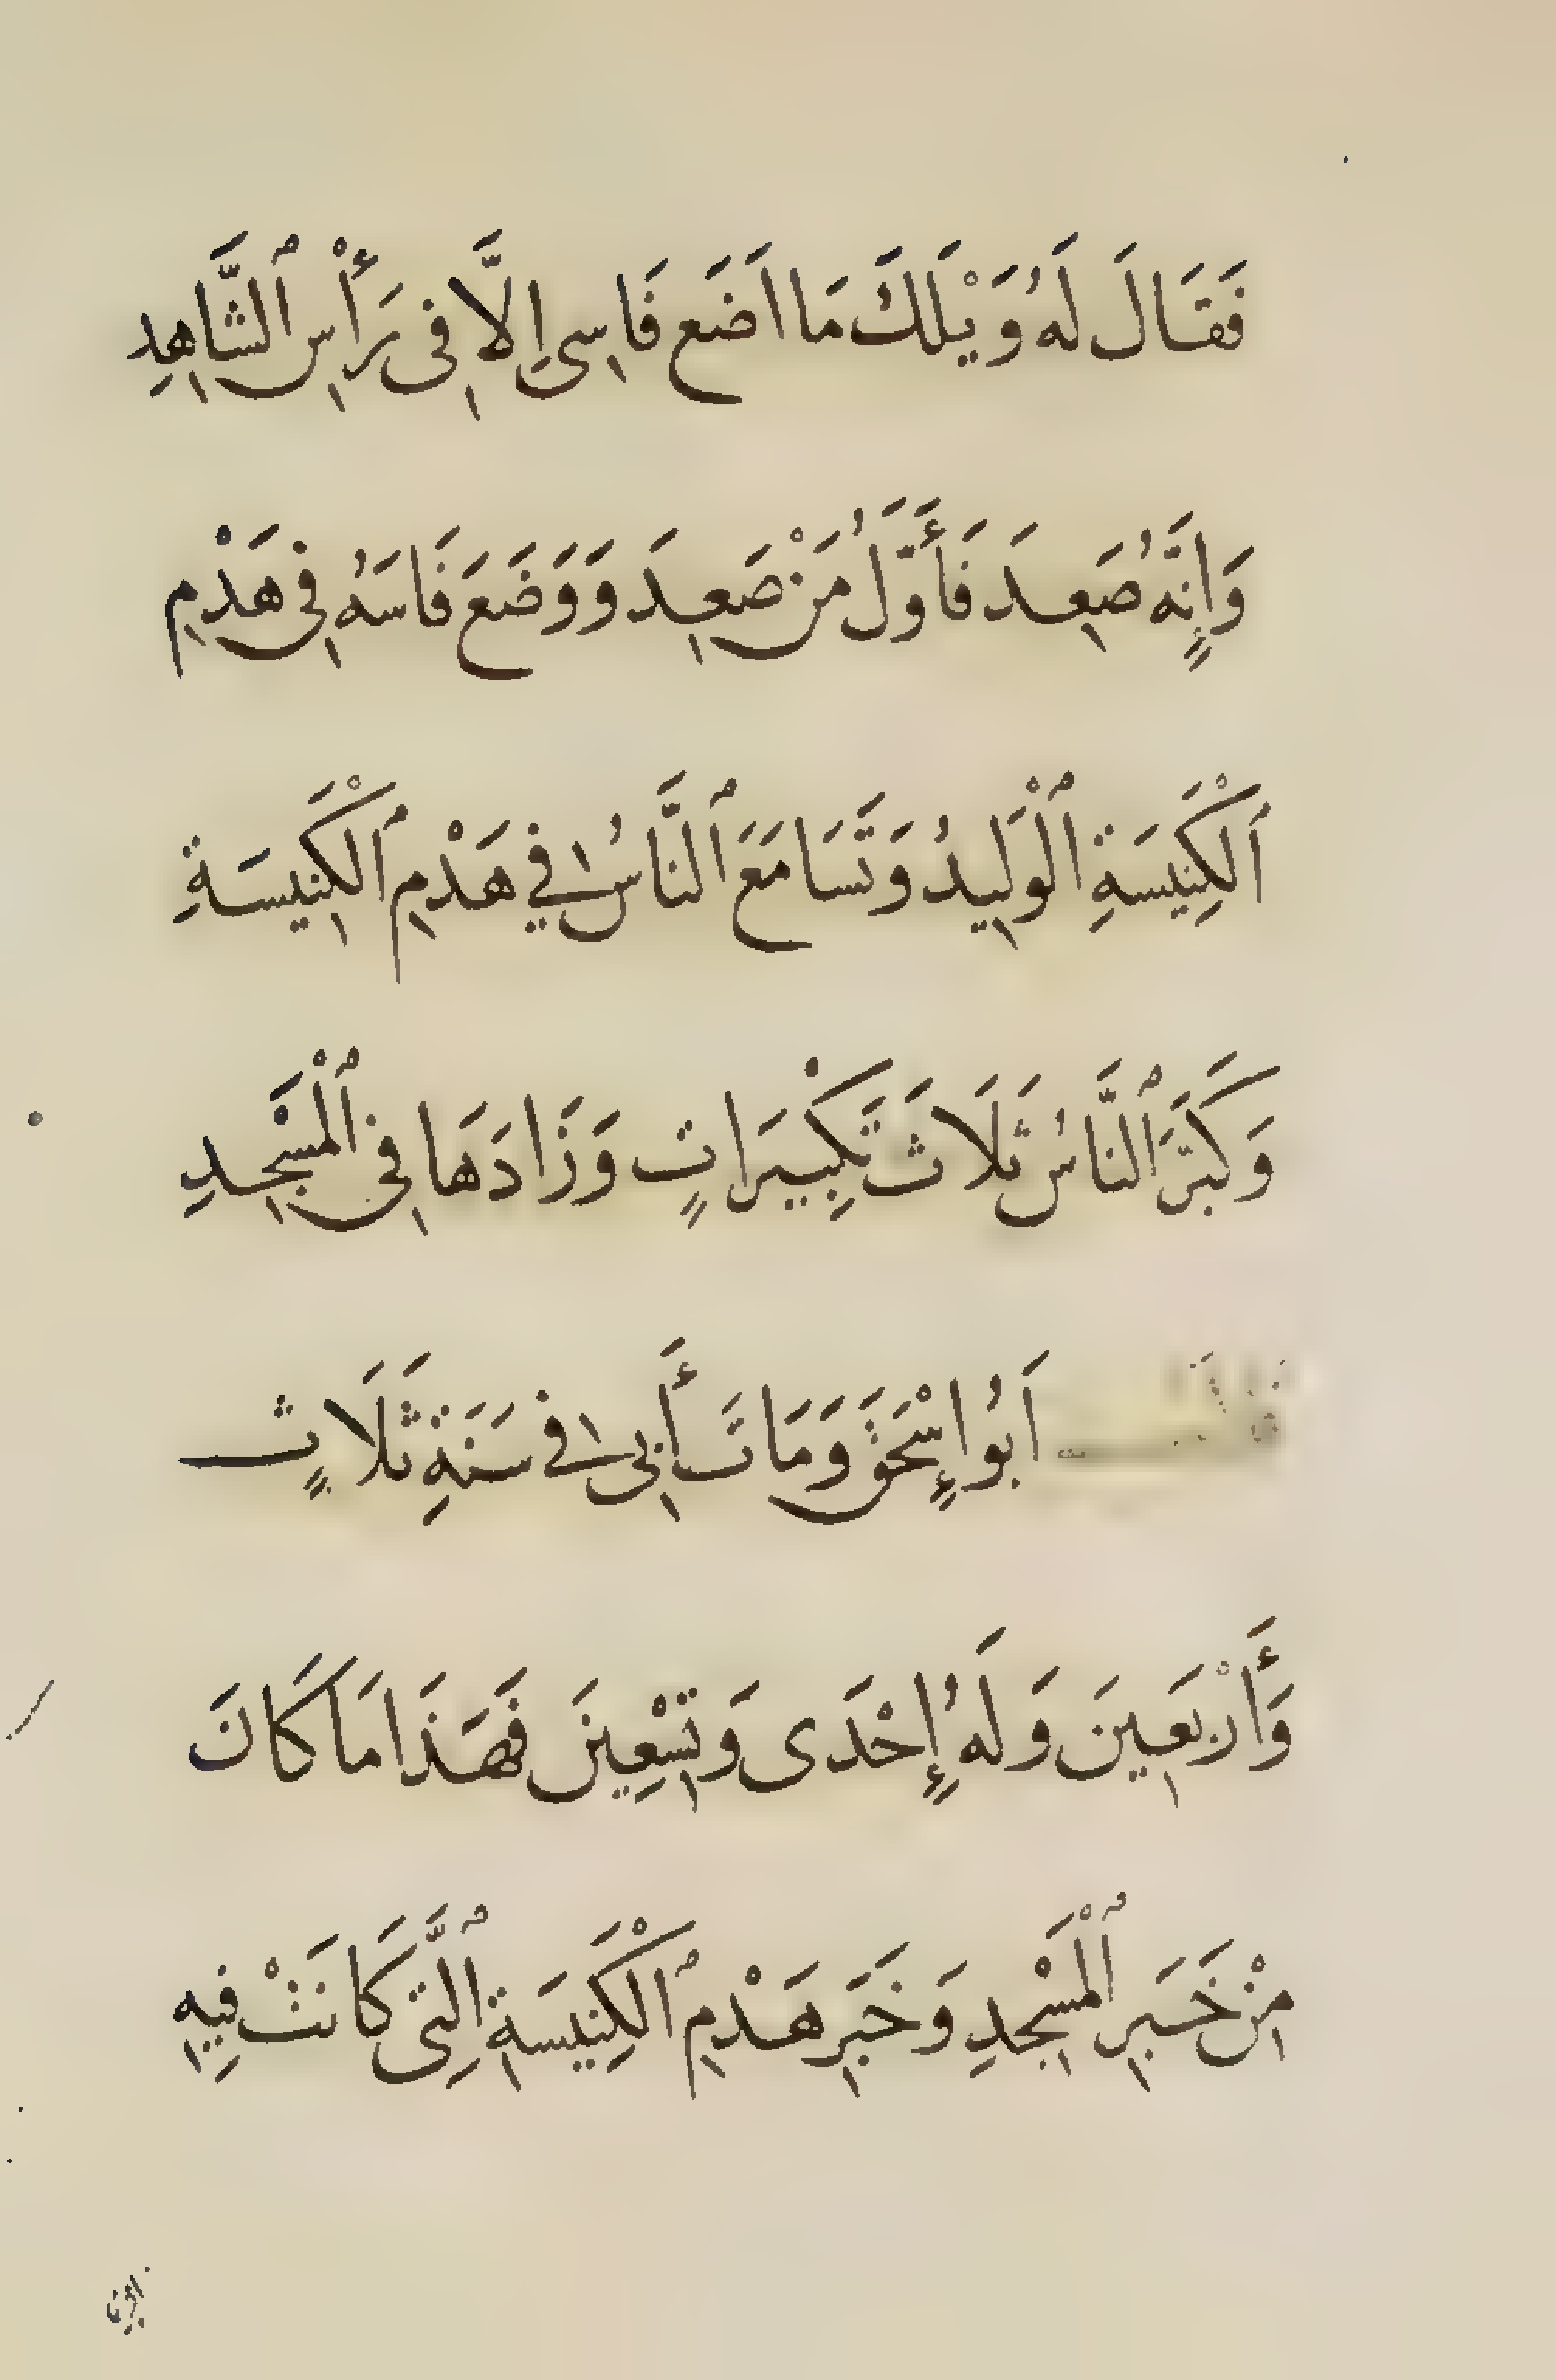 فَقَالَ لَهُ وَيْلَكَ مَا اَضَع فَاسِى اِلَّا فِى رَأْسِ ٱلشَّاهِدِ
وَاِنَّهُ صَعِدَ فَأَوَّلُ مَنْ صَعِدَ وَوَضَعَ فَاسَهُ فِى هَدْمِ
ٱلْكَنِيسَةِ ٱلْوَلِيدُ وَتَسَامَعَ ٱلنَّاسُ فِي هَدْمِ ٱلْكَنِيسَةِ
وَكَبَّرَ ٱلنَّاسُ ثَلَاثَ تَكْبِيرَاتٍ وَزَادَهَا فِى ٱلْمَسْجِدِ
اَبُو اِسْحَقَ وَمَاتَ أَبِى فِى سَنَةِ ثَلَاثٍ
وَأَرْبَعِينَ وَلَهُ إِحْدَى وَتِسْعِينَ فَهَذَا مَا كَانَ
مِنْ خَبَرِ ٱلْمَسْجِدِ وَخَبَرِ هَدْمِ ٱلْكَنِيسَةِ ٱلَّتِى كَانَتْ فِيهِ